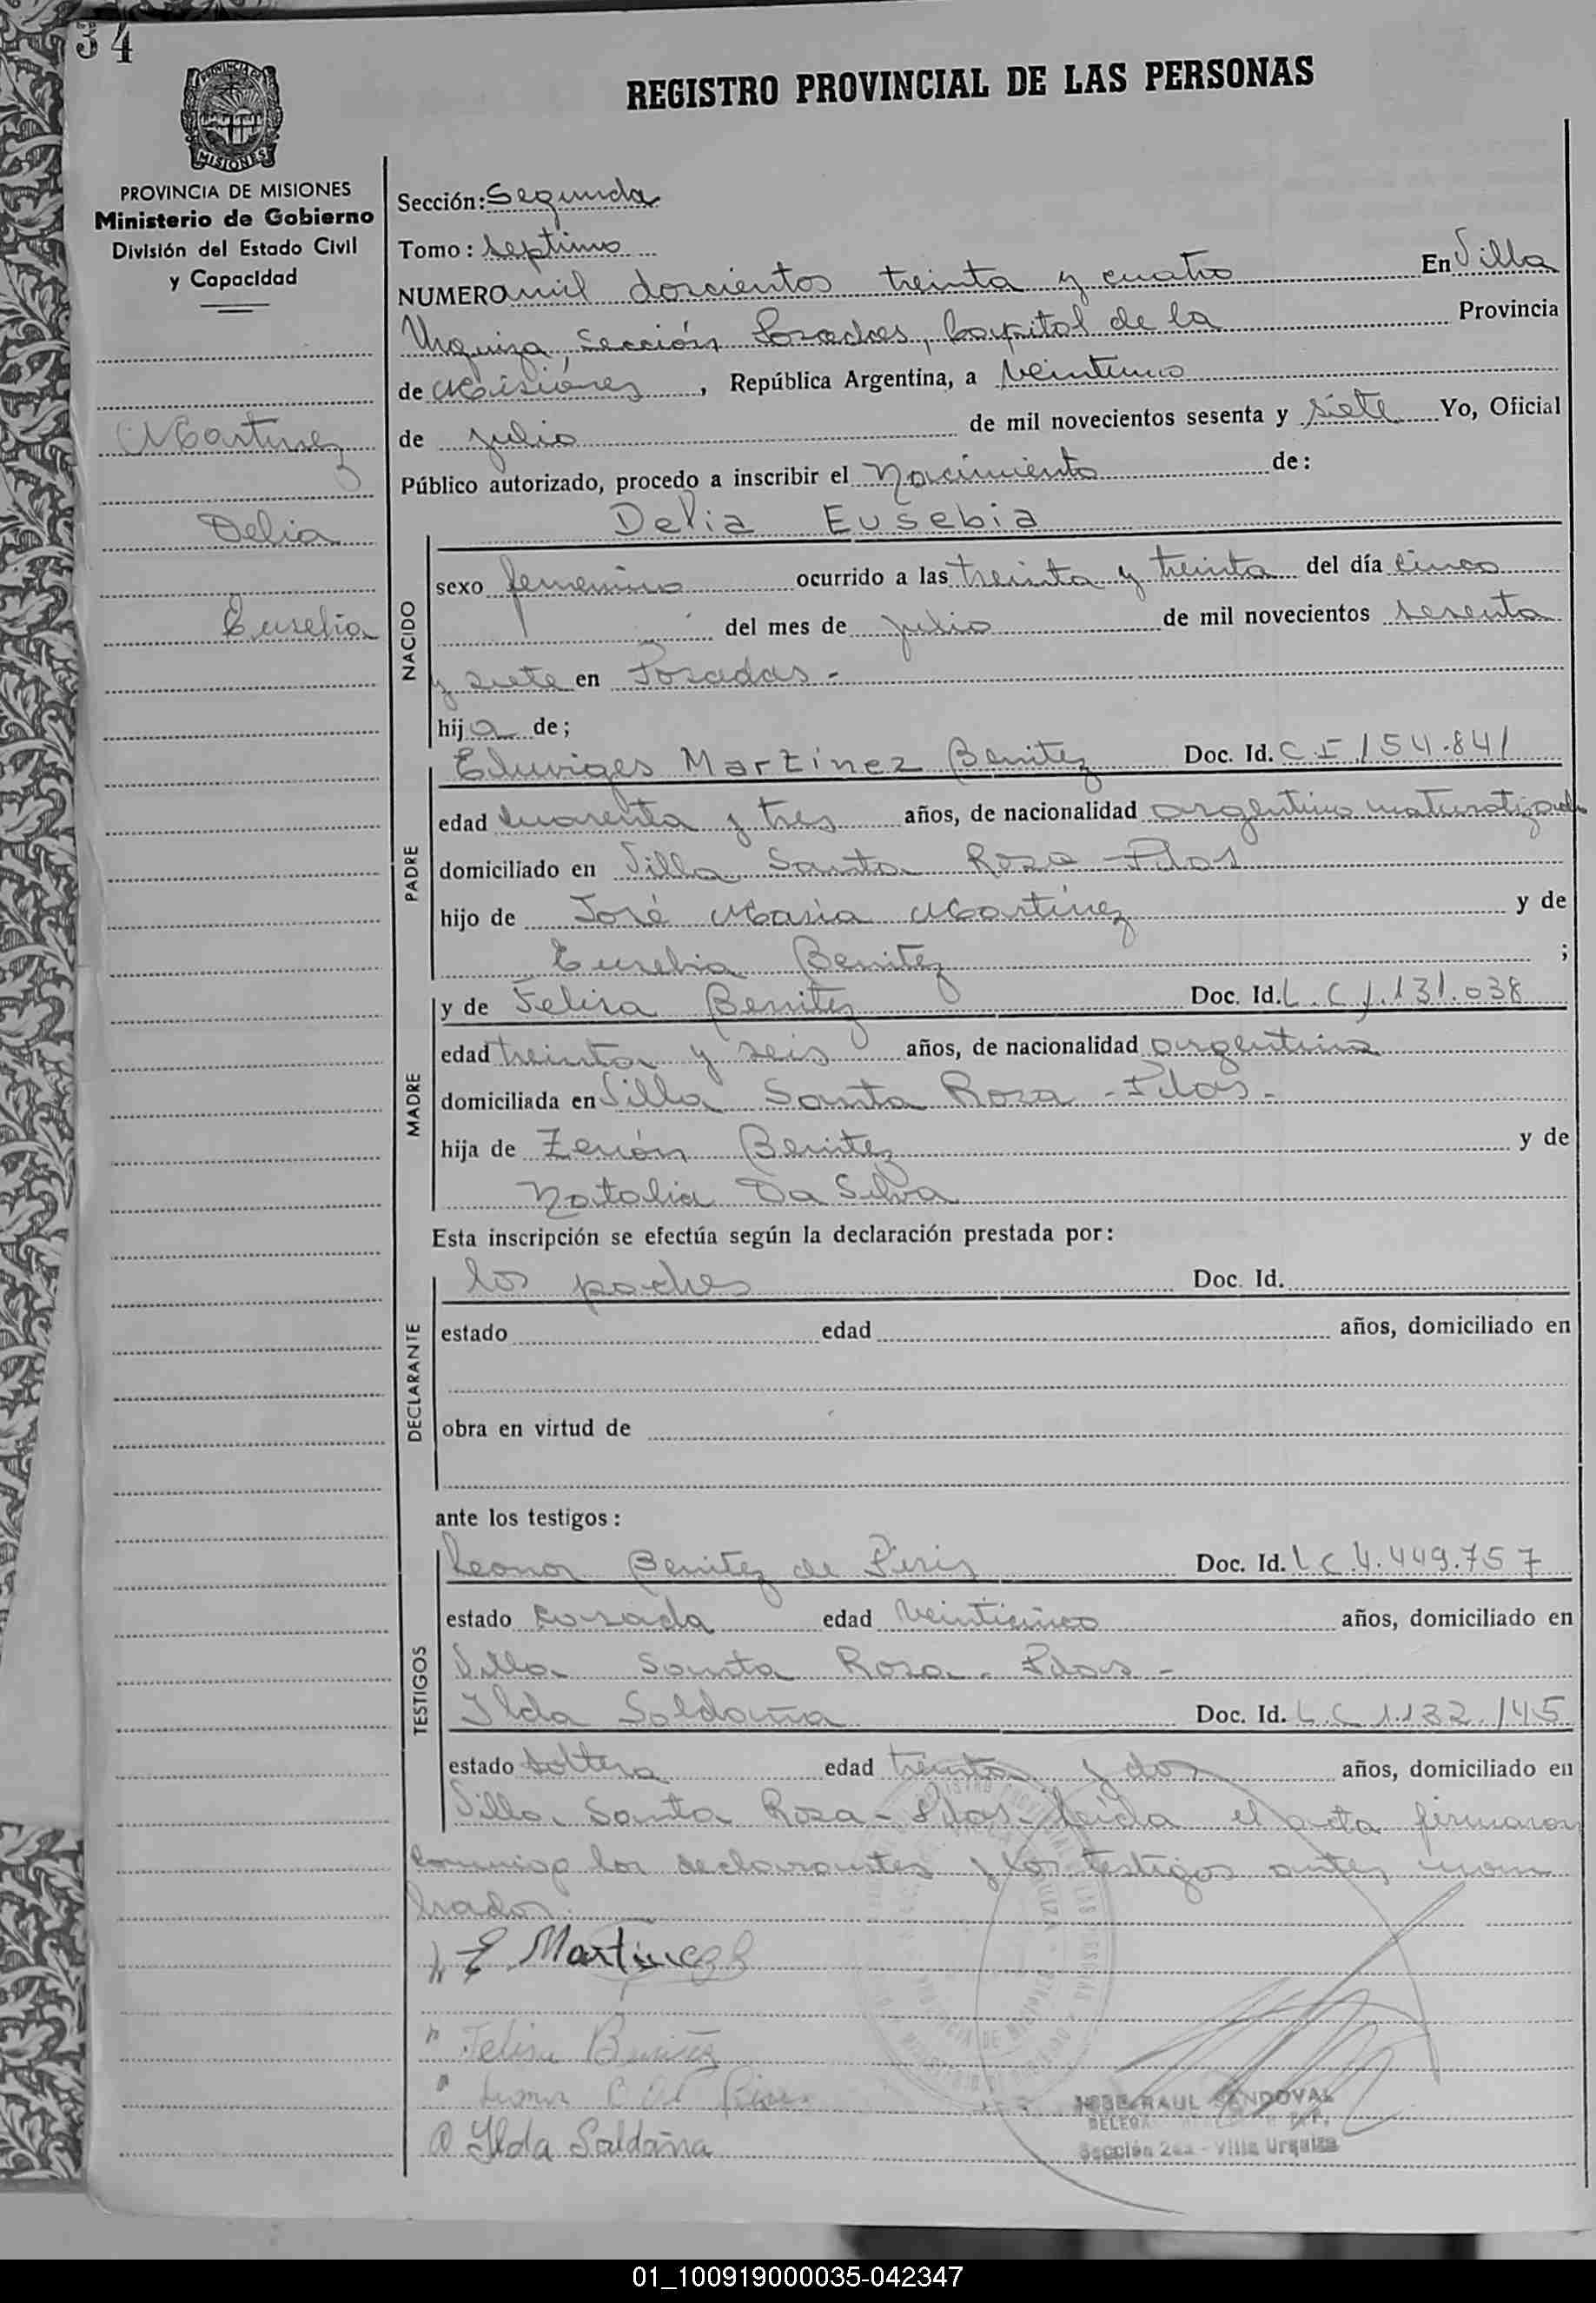 34
REGISTRO PROVINCIAL DE LAS PERSONAS
MISIONES
PROVINCIA DE MISIONES
Ministerio de Gobierno
División del Estado Civil
y Capacidad
Martinez
Delia
Eusebia
Sección: Segunda
Tomo: septimo
NUMERO mil doscientos treinta y cuatro En Villa
Urquiza, Sección Posadas, Capital de la Provincia
de Misiones, República Argentina, a veintiuno
de julio de mil novecientos sesenta y siete Yo, Oficial
Público autorizado, procedo a inscribir el Nacimiento de:
Delia Eusebia
NACIDO
sexo femenino ocurrido a las treinta y treinta del día cinco
del mes de julio de mil novecientos sesenta
y siete en Posadas.-
hija de;
PADRE
Eduviges Martínez Benitez Doc. Id. C I 154.841
edad cuarenta y tres años, de nacionalidad argentino naturalizado
domiciliado en Villa Santa Rosa - Pdas
hijo de José María Martínez y de
Eusebia Benitez ;
MADRE
y de Felisa Benitez Doc. Id. L.C 1.131.038
edad treinta y seis años, de nacionalidad argentina
domiciliada en Villa Santa Rosa - Pdas.-
hija de Zenón Benitez y de
Natalia Da Silva
Esta inscripción se efectúa según la declaración prestada por:
DECLARANTE
los padres Doc. Id.
estado edad años, domiciliado en
obra en virtud de
ante los testigos:
TESTIGOS
Leonor Benitez de Piris Doc. Id. L C 4.449.757
estado casada edad veinticinco años, domiciliado en
Villa Santa Rosa - Pdas -
Ilda Saldaña Doc. Id. L.C 1.132.145
estado soltera edad treinta y dos años, domiciliado en
Villa Santa Rosa - Pdas. leída el acta firmaron
conmigo los declarantes y los testigos antes nom
brados.
E. Martinez B
Felisa Benitez
Ilda Saldaña
JOSE RAUL SANDOVAL
Sección 2da - Villa Urquiza
01_100919000035-042347